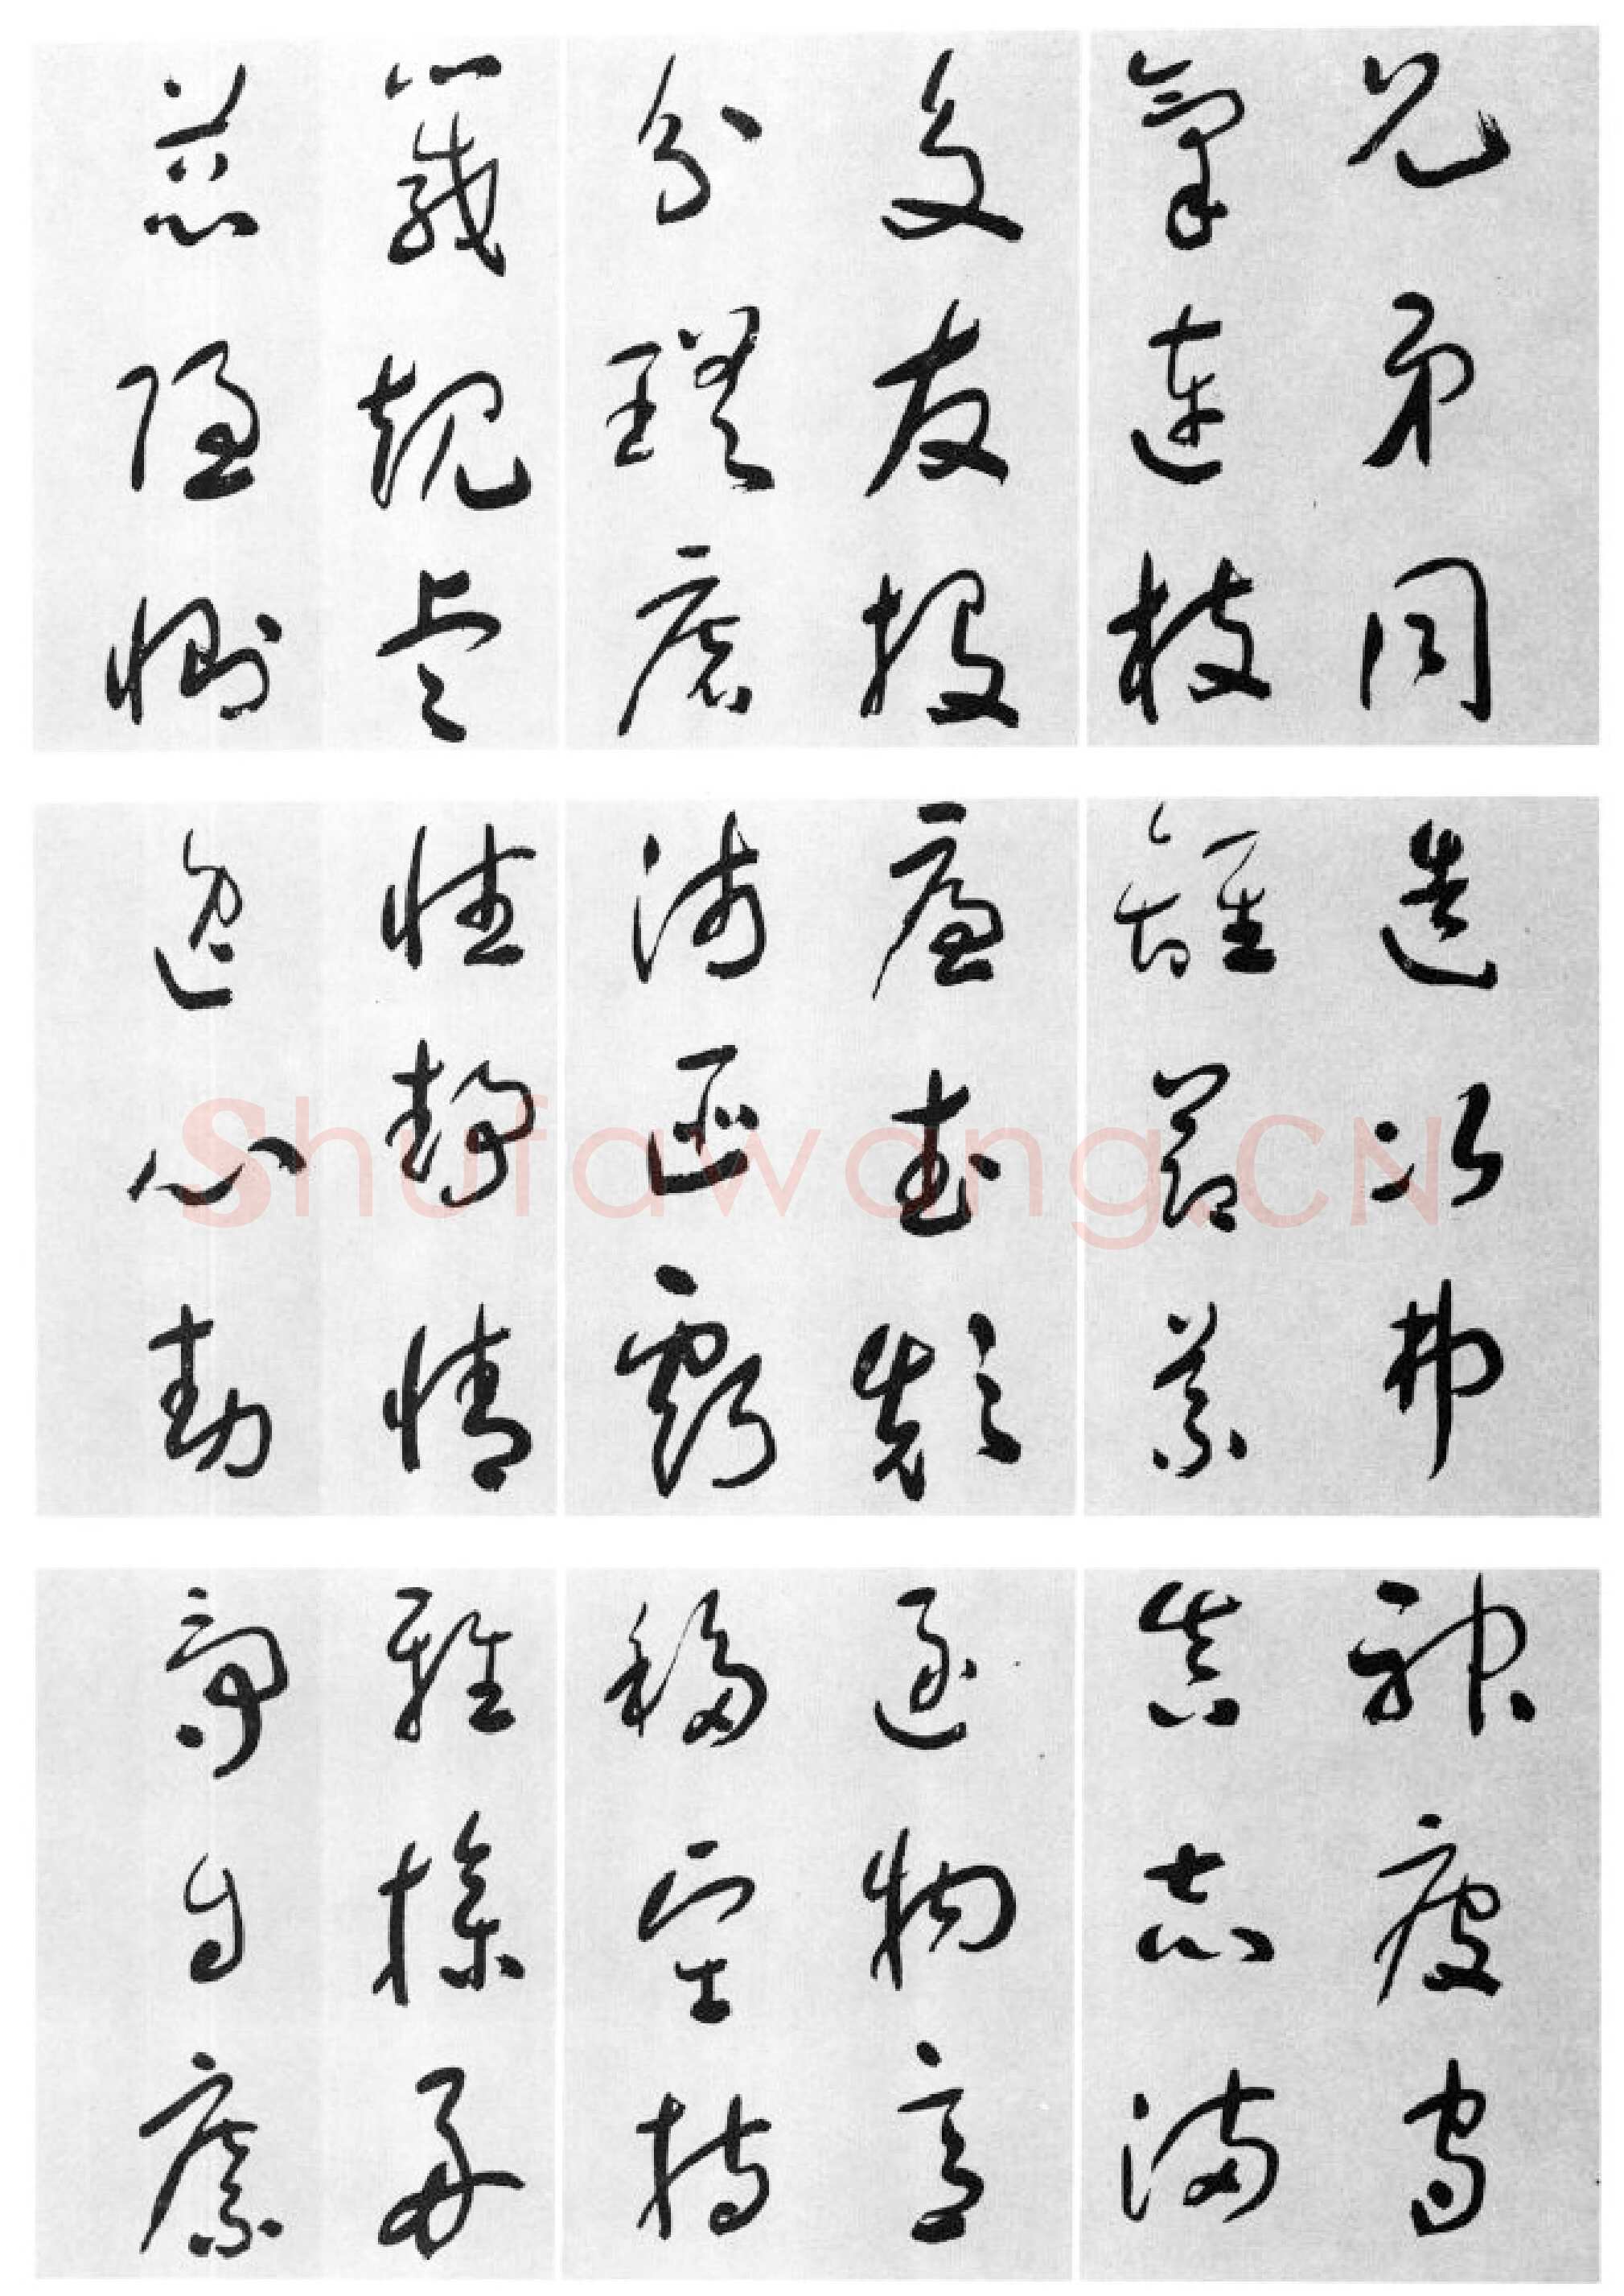 兄弟同
氣連枝
交友投
分磨
箴規仁
慈隱惻
造次弗
離節義
廉退顛
沛匪虧
性靜情
逸心動
神疲守
真志滿
逐物意
移堅持
雅操好
爵自縻
shufawang.CN